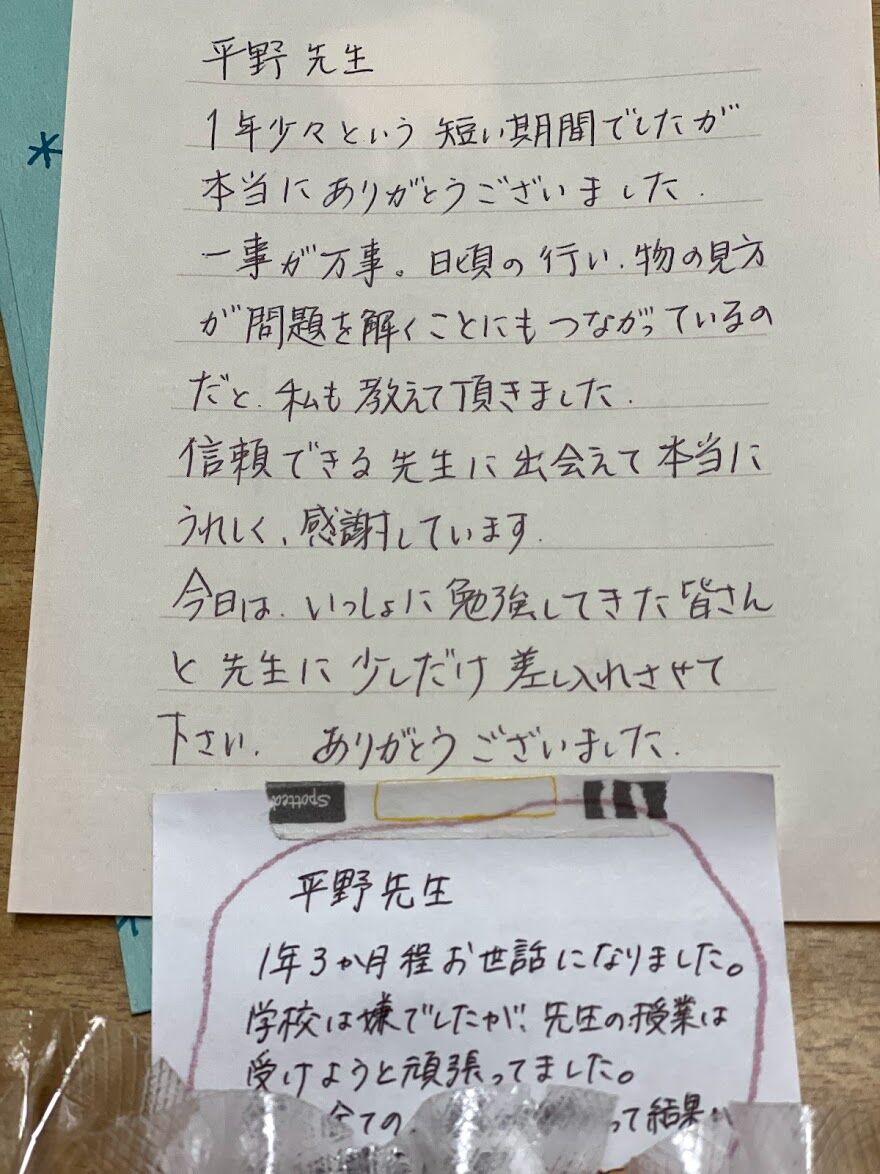 平野先生
1年少々という短い期間でしたが
本当にありがとうございました.
一事が万事。日頃の行い.物の見方
が問題を解くことにもつながっているの
だと.私も教えて頂きました.
信頼できる先生に出会えて本当に
うれしく、感謝しています.
今日は.いっしょに勉強してきた皆さん
と先生に少しだけ差し入れさせて
下さい. ありがとうございました.
Spotted
平野先生
1年3か月程お世話になりました。
学校は嫌でしたが、先生の授業は
受けようと頑張ってました。
全ての って結果